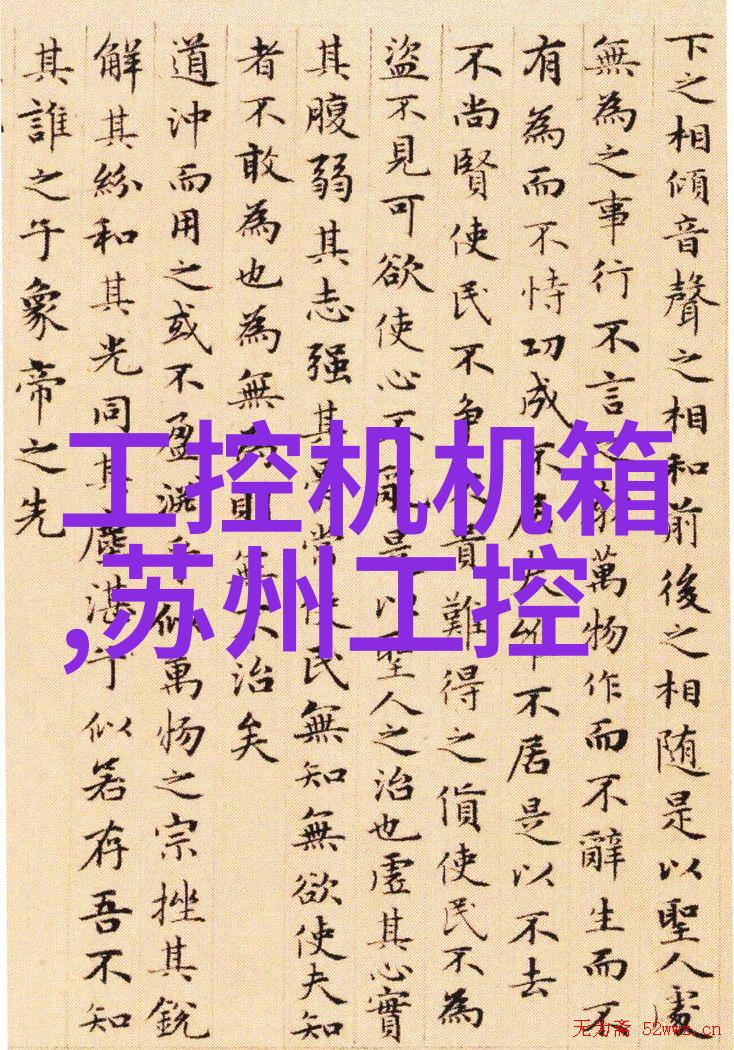 下之相傾音聲之相和前後之相随是以聖人處
無為之事行不言之教萬物作而不辭生而不
有為而不恃功成不居夫唯不居是以不去
不尚賢使民不争不貴難得之貨使民不為
盜不見可欲使心不亂是以聖人之治也虛其心實
其腹弱其志强其骨常使民無知無欲使夫知
者不敢為也為無為則無不治矣
道沖而用之或不盈淵乎似萬物之宗挫其銳
解其紛和其光同其塵湛乎似若存吾不知
其誰之子象帝之先
工控机机箱
,苏州工控
无为斋 52wwz.cn